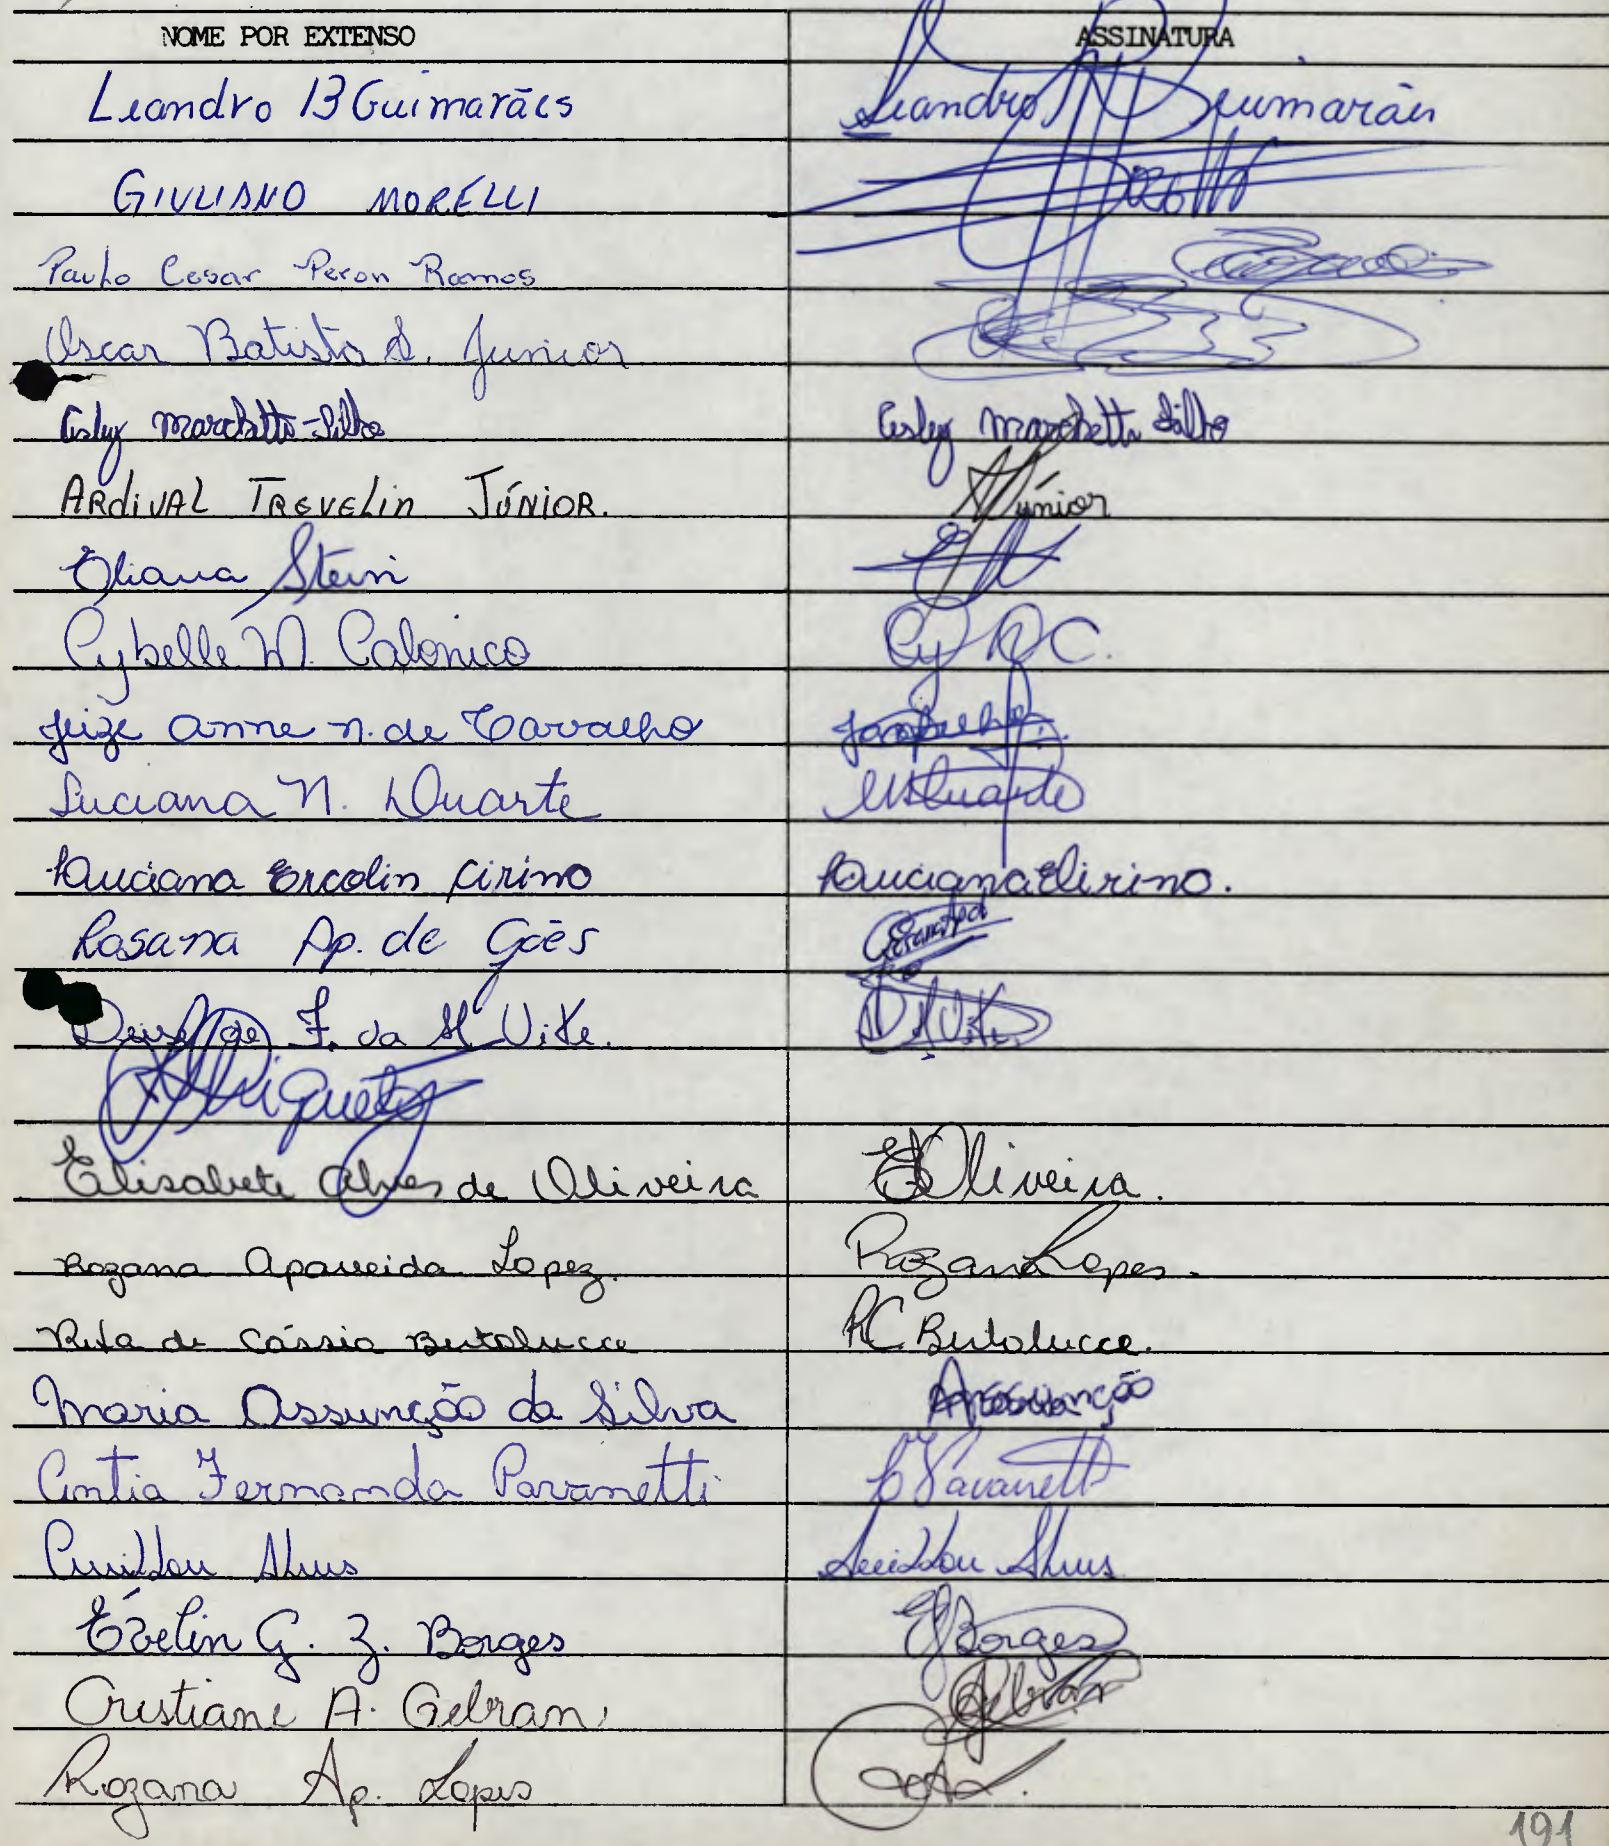 NOME POR EXTENSO ASSINATURA
Leandro B Guimarães Leandro B Guimarães
GIULIANO MORELLI
Paulo Cesar Peron Ramos
Oscar Batista S. Junior
Cesley Marchetti Filho Cesley Marchetti Filho
ARDIVAL TREVELIN JÚNIOR. Júnior
Eliana Stein
Cybelle M. Calonico Cy M C.
Jeize Anne N. de Carvalho
Luciana N. Duarte Duarte
Luciana Ercolin Cirino Luciana E Cirino.
Rosana Ap. de Góes Rosana Apd
F. da M Vite.
Elisabete Alves de Oliveira EA Oliveira.
Rozana Aparecida Lopez. Rozana Lopes.
Rita de Cássia Bertolucce RC Bertolucce.
Maria Assunção da Silva Assunção
Cintia Fernanda Pavanetti C F Pavanetti
Alves Alves
Evelin G. Z. Borges E Borges
Cristiane A. Gebran Gebran
Rozana Ap. Lopes
191